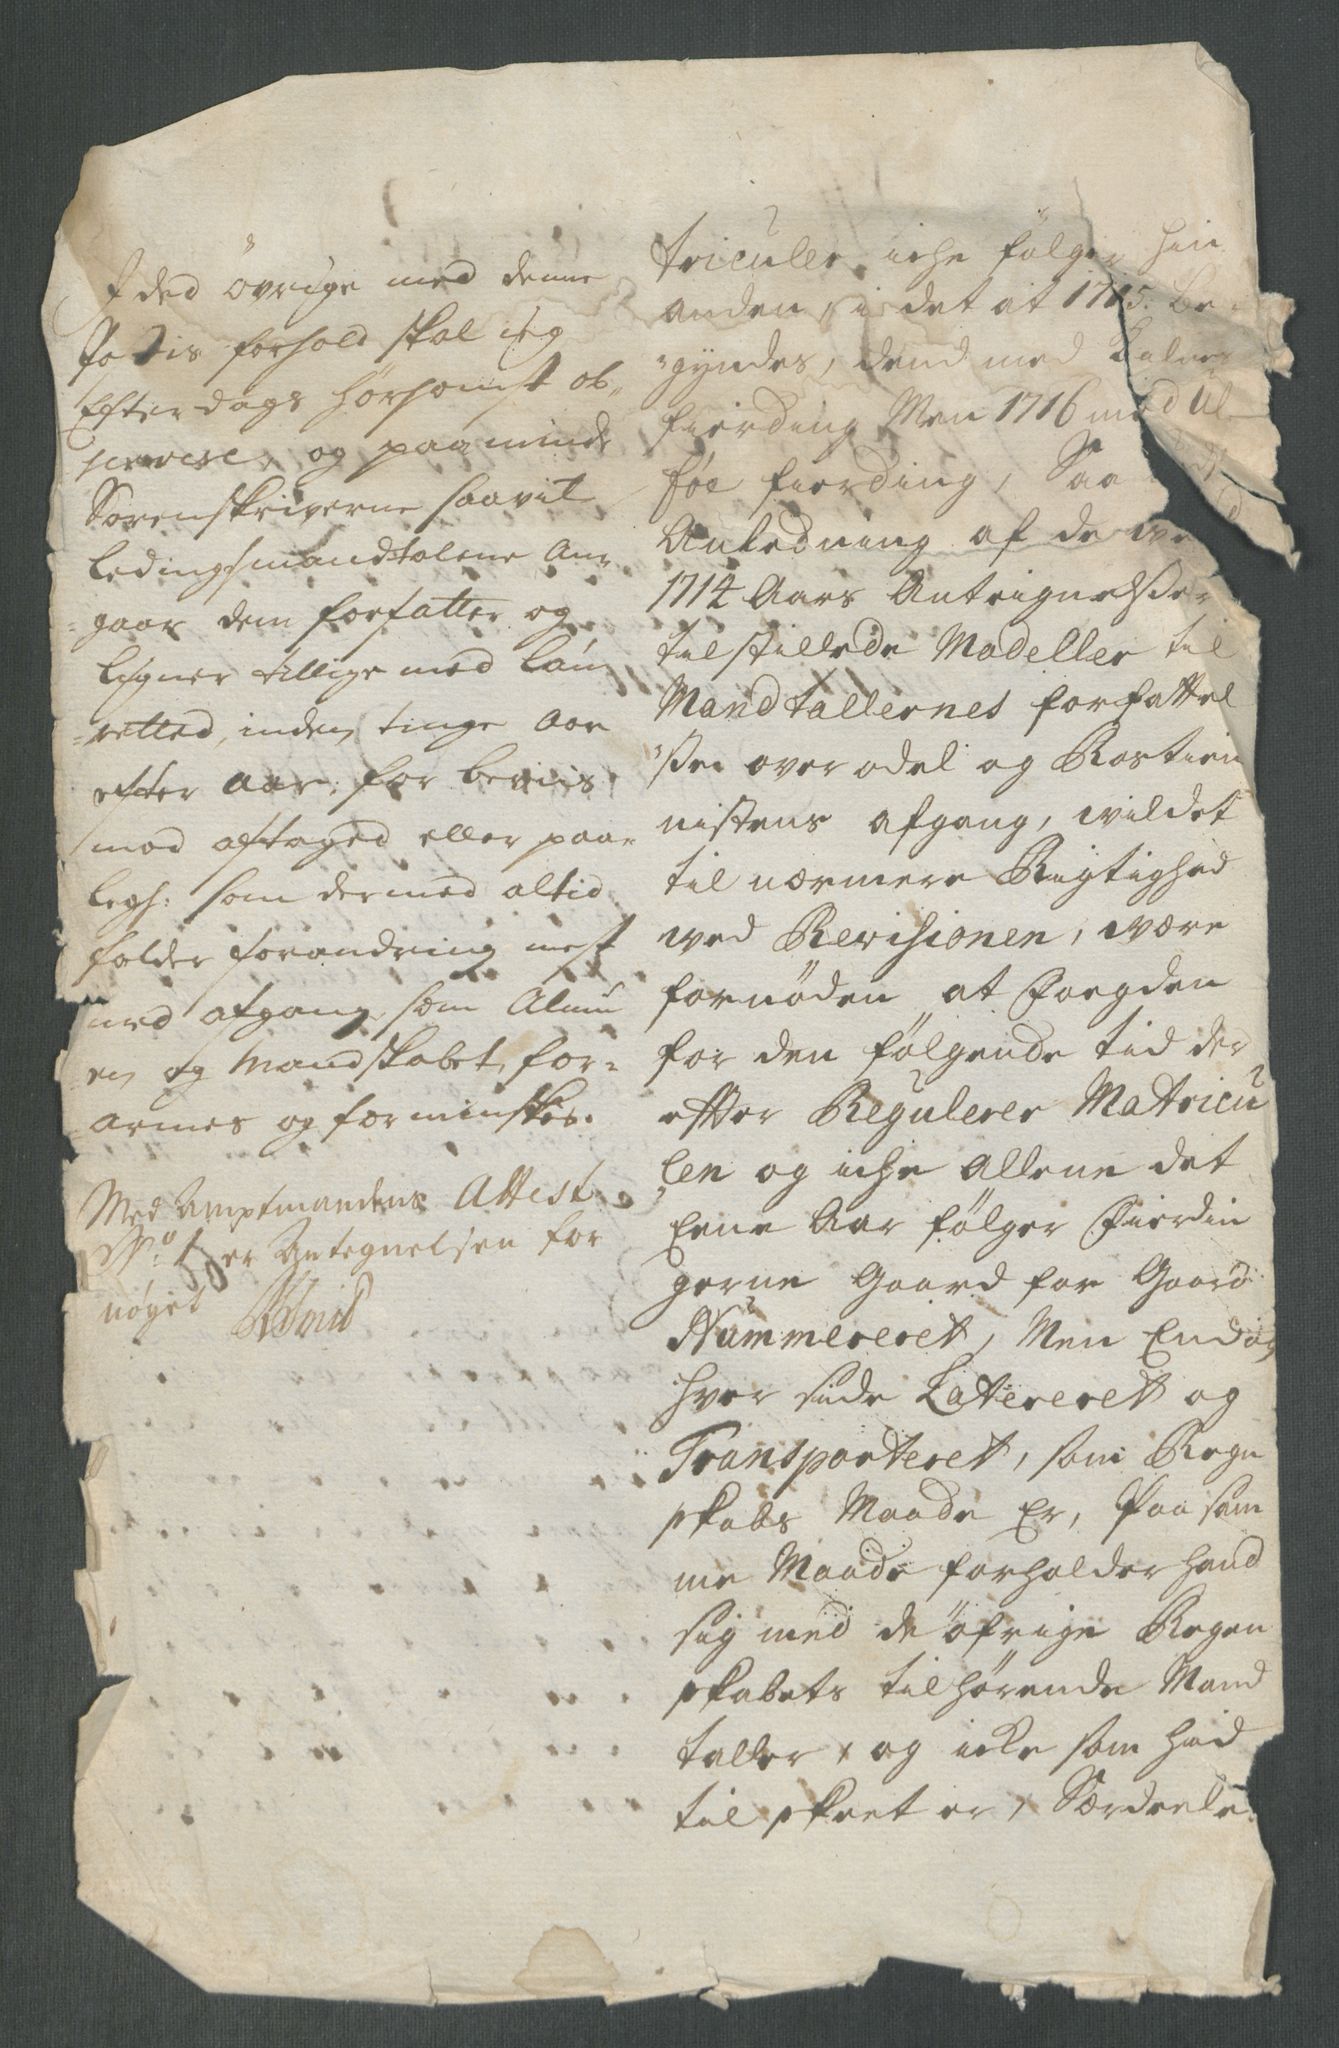 I ded övrige med denne
Pos̄tis forhold skal ieg
Efterdags hörsomst ob-
servere, og paaminde
Sorenskriverne saavit
Ledingsmandtalene An-
gaar dem forfatter og
ligner tillige med laug
retted, inden tinge Aar
efter Aar, for beviis
mod aftaged eller paa-
legh: som dermed altid
falder forandring mest
med afgang som Almu
en og Mandskabet for-
armes og forminskes.
Med Amptmandens Attest
No 1 er Antegnelsen for
nöyet
triculer iche fölger hin
anden, i det at 1715. Be-
gyndes, dend med
fierding Men 1716 med Ul-
föe fierding, Saa
Anledning af de ved
1714 Aars Anteignelsser
tilstillede Modeller til
Mandtallernes forfattel
ssen over odel og Rostien
nistens afgang, vil det
til nærmere Rigtighed
ved Revisionen, være
fornöden at Foegden
for den fölgende tid der
effter Regulerer Matricu
len og iche allene det
Eene Aar fölger Fierdin
gerne Gaard for Gaard
Nummereret, Men Endog
hver side Latereret og
Transporteret, som Regn
skabs Maade Er, Paa sam
me Maade forholder hand
sig med de öfrige Regen
skabets tilhörende Mand
taller, og icke som hid
til skeet er, Særdeele